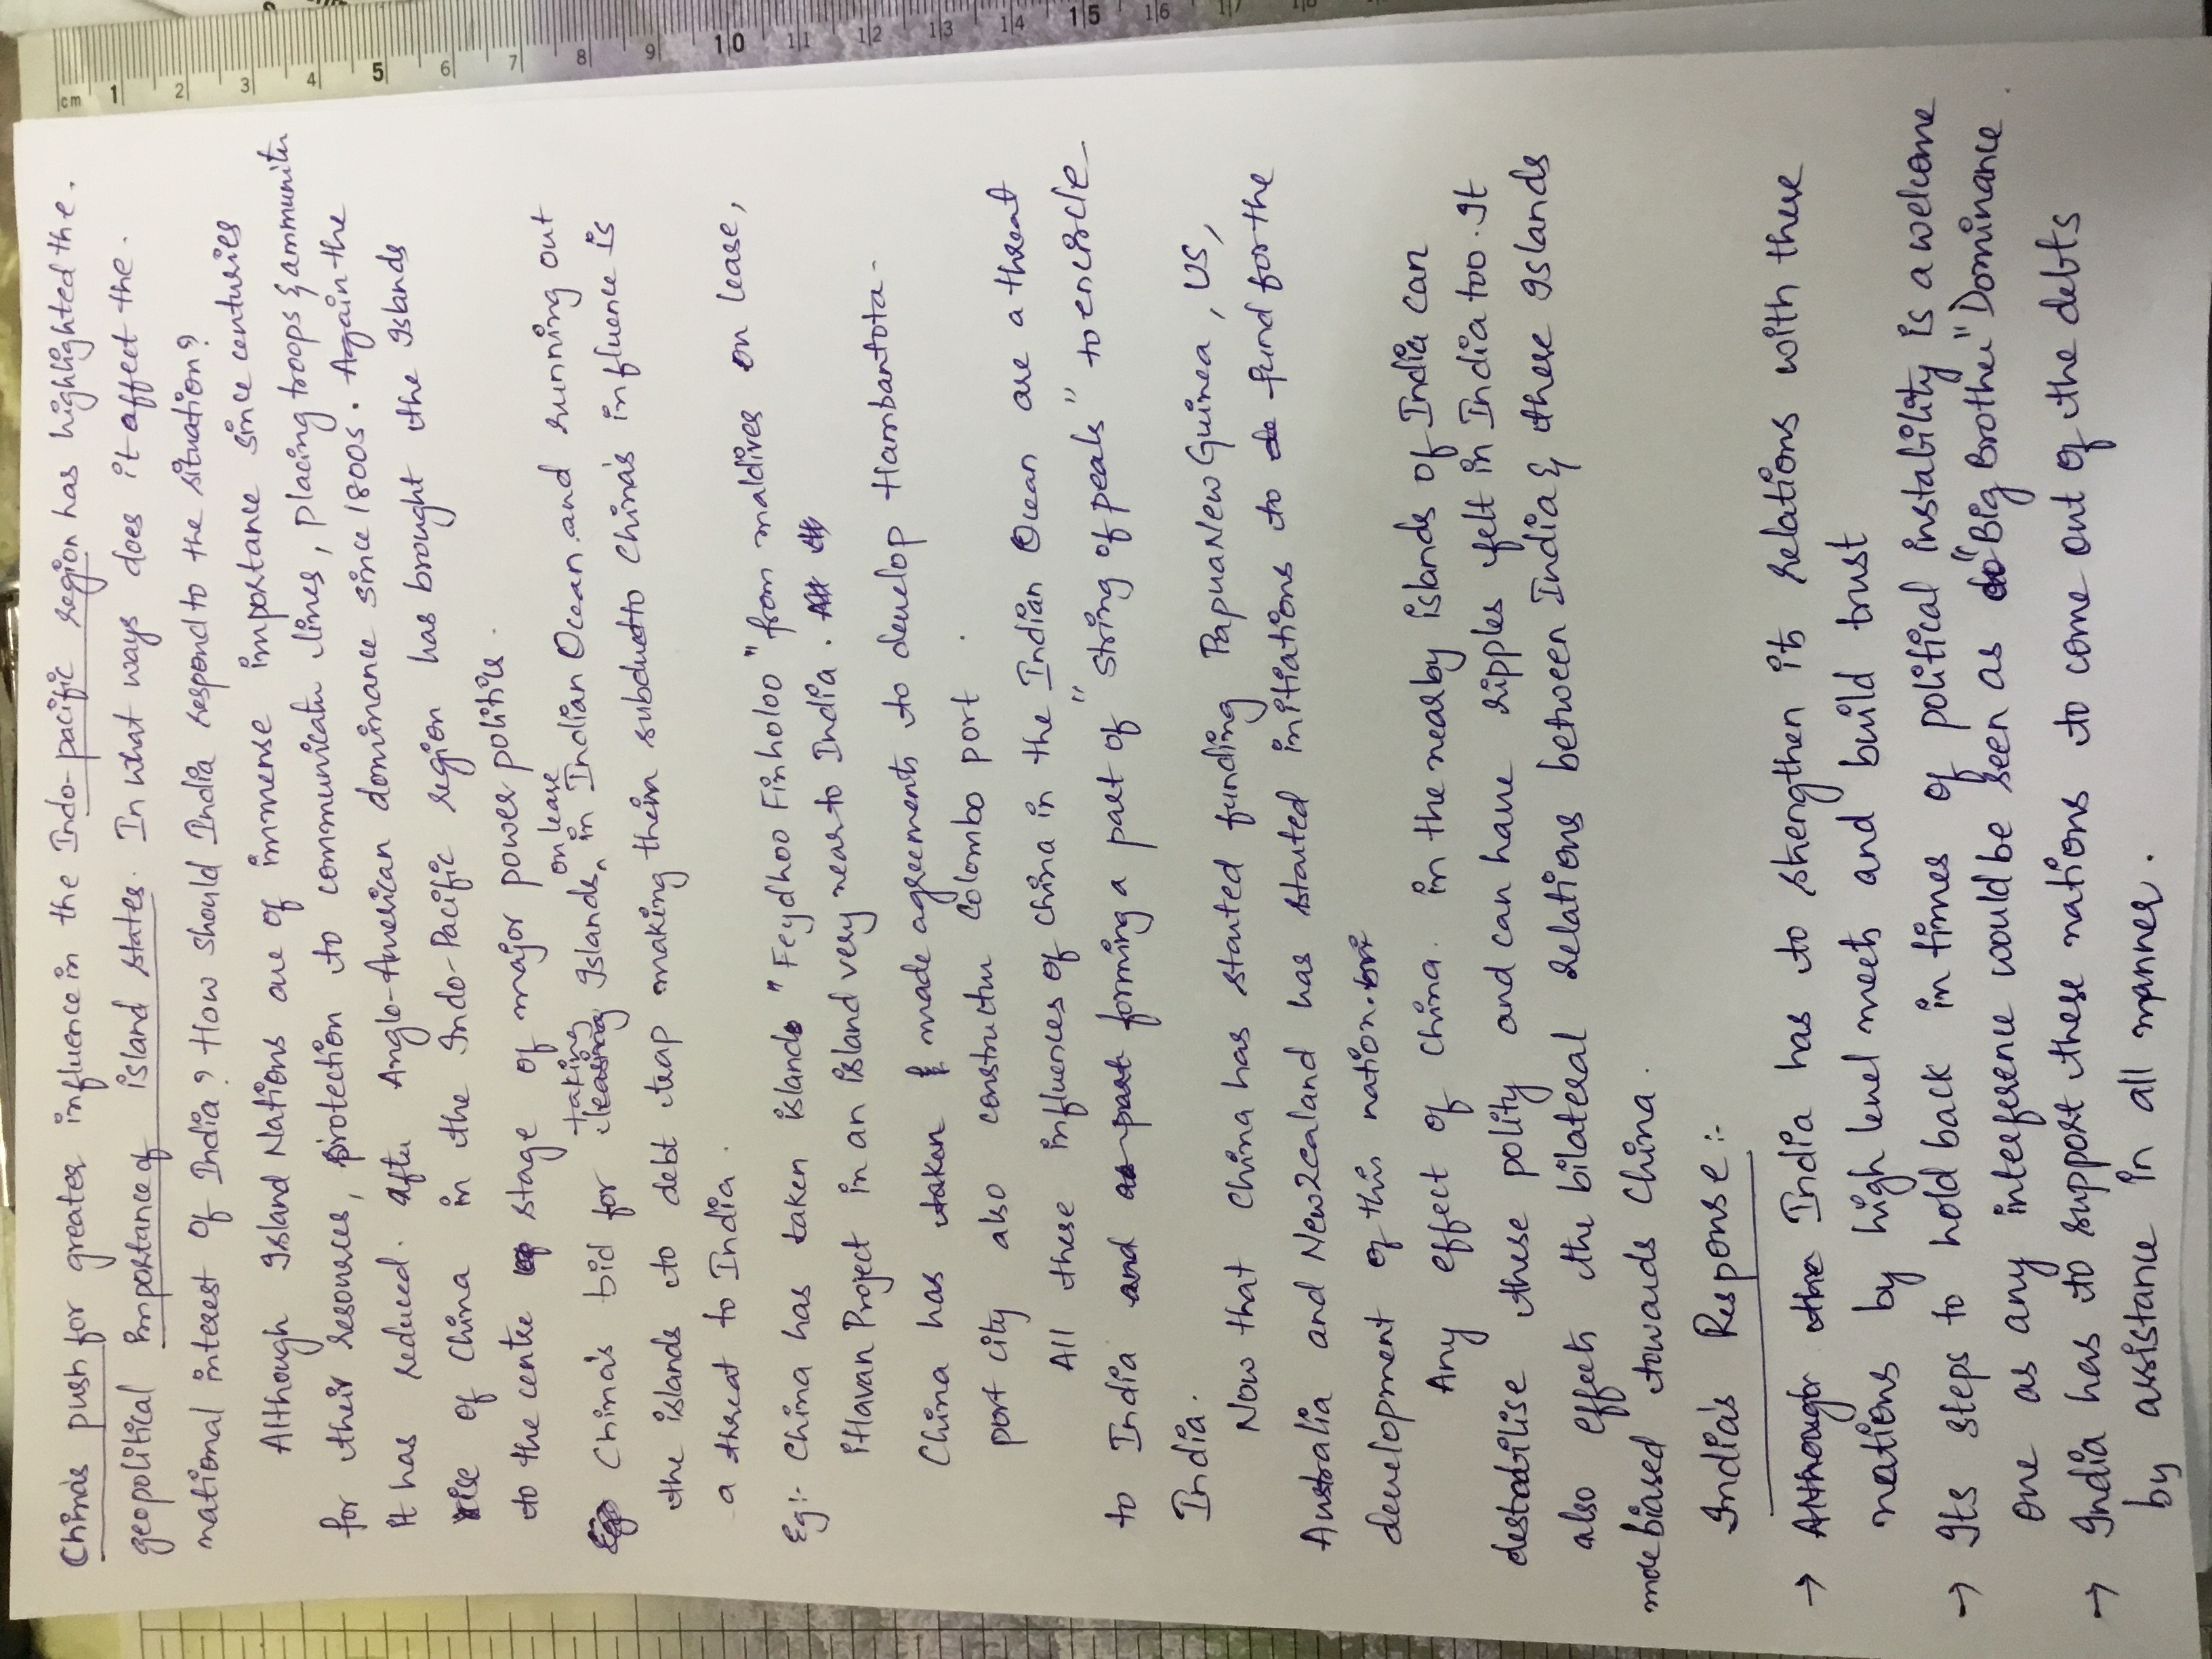 China's push for greater influence in the Indo-pacific region has highlighted the.
geopolitical importance of island states. In what ways does it affect the.
national interest of India? How should India respond to the situation?
Although Island Nations are of immense importance since centuries
for their resources, protection to communicatn lines, placing troops & ammunitn
it has reduced. after Anglo-American dominance since 1800s. Again the
rise of China in the Indo-Pacific region has brought the Islands
to the centre stage of major power politics.
China's bid for taking leasing Islands, on lease in Indian Ocean and running out
the islands to debt trap making them subdued to China's influence is
a threat to India.
Eg:- China has taken islands "Feydhoo Finholoo" from maldives on lease,
iHavan Project in an island very near to India.
China has taken & made agreements to develop Hambantota.
port city also constructn Colombo port.
All these influences of China in the Indian Ocean are a threat
to India and as part forming a part of "string of peals" to encircle
India.
Now that China has started funding Papua New Guinea, US,
Australia and New Zealand has started initiations to do fund for the
development of this nation.
Any effect of China. in the nearby islands of India can
destabilise these polity and can have ripples felt in India too. It
also effects the bilateral relations between India & these Islands
more biased towards China.
India's Response:-
→ Although the India has to strengthen its relations with these
nations by high level meets and build trust
→ Its steps to hold back in times of political instability is a welcome
one as any inteference would be seen as do "Big Brother" Dominance
→ India has to support these nations to come out of the debts
by assistance in all manner.
cm 1 2 3 4 5 6 7 8 9 10 11 12 13 14 15 16 17